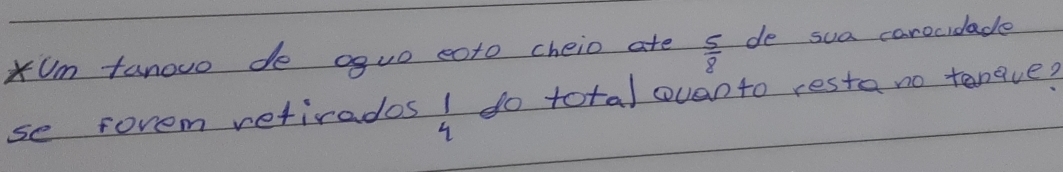 x Um tanouo de oguo eoto cheio ate 5/8 de sua carocidade
se forem retirados 1/4 do total quanto resta no tanque?